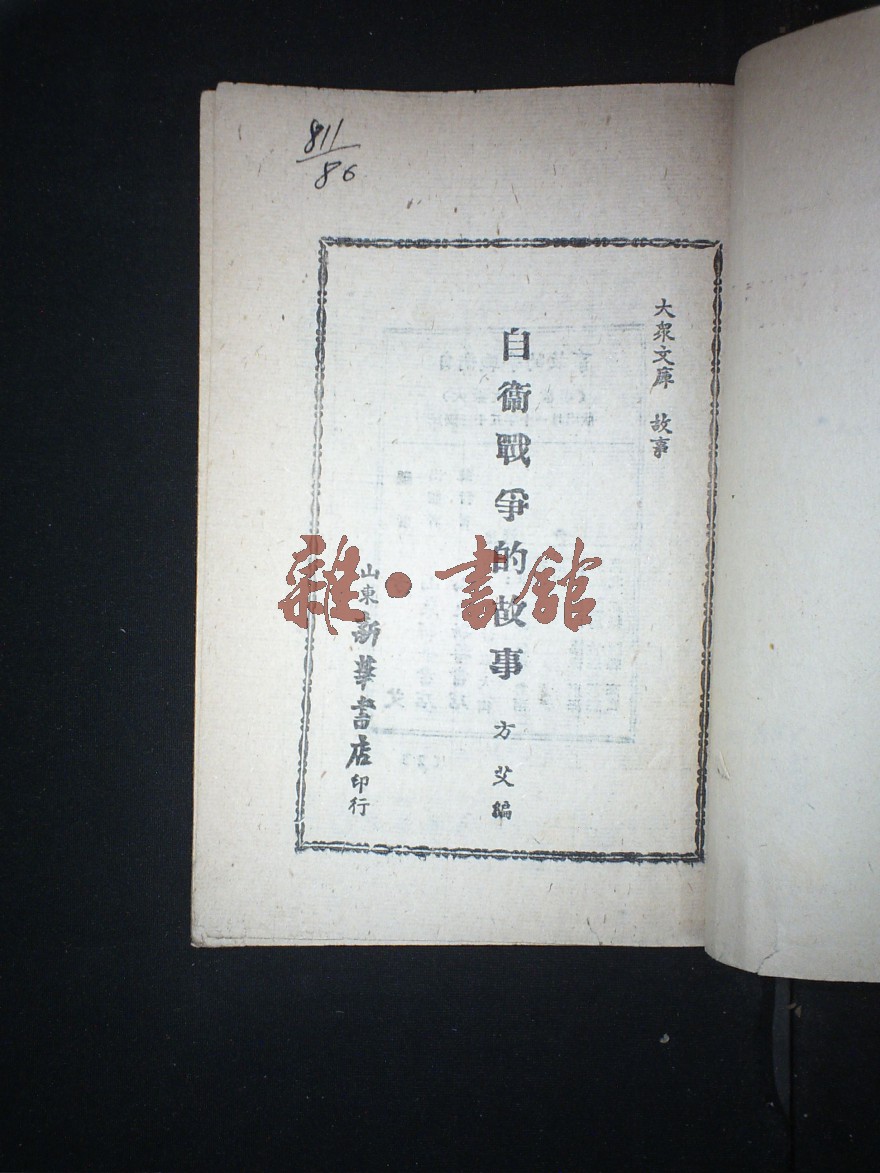 811
86
大衆文庫 故事
自衞戰爭的故事
方艾編
山東新華書店印行
雜·書館